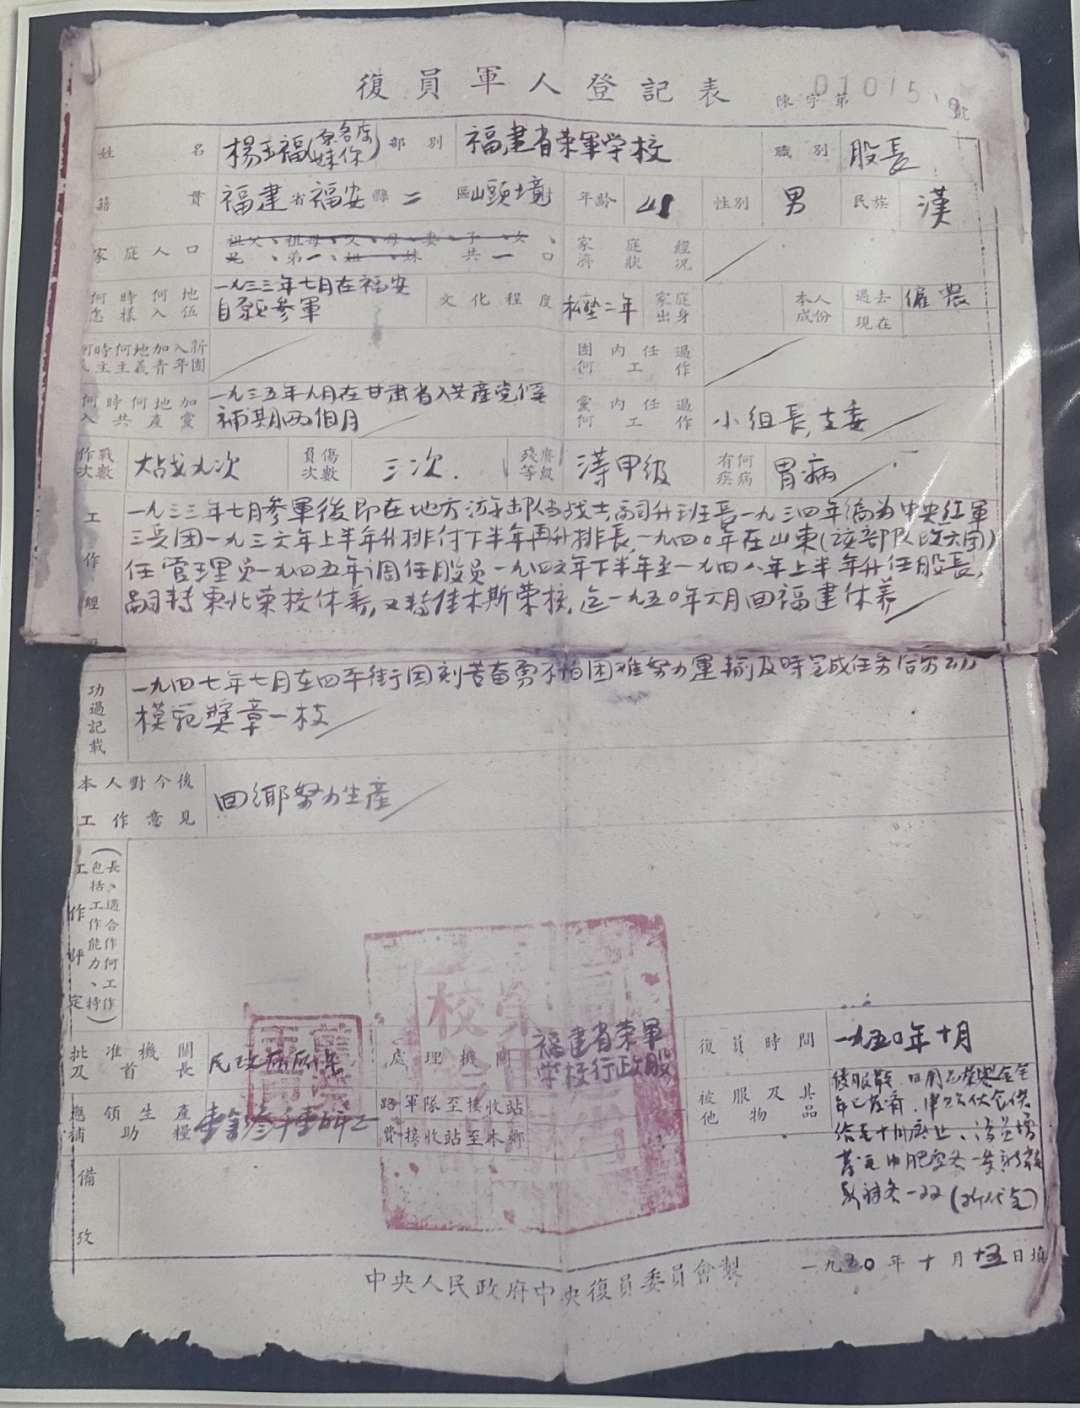 復員軍人登記表 陳字第 01015 號
姓名 楊玉福(原名 妹 ) 部別 福建省荣軍学校 職別 股長
籍貫 福建省福安縣二區山頭 年齡 41 性別 男 民族 漢
家庭人口 祖父、祖母、父、母、妻、子、女、兄、弟一、姐、妹 共一口 家庭經濟狀況
何時何地怎樣入伍 一九三三年七月在福安自愿參軍 文化程度 私塾二年 家庭出身 本人成份 過去 僱農 現在
何時何地加入新民主主義青年團 團內任過何工作
何時何地加入共產黨 一九三五年八月在甘肃省入共產党候補期两個月 黨內任過何工作 小组長,支委
作戰次數 大战九次 負傷次數 三次. 殘廢等級 甲級 有何疾病 胃病
工作經
一九三三年七月參軍後即在地方游击队当战士,嗣升班長一九三四年编为中央红軍
三兵团一九三六年上半年升排付下半年再升排長,一九四〇年在山東(該部队改六团)
任管理员一九四五年调任股员一九四六年下半年至一九四八年上半年升任股長,
嗣转東北荣校休养,又转佳木斯荣校,迄一九五〇年六月回福建休养
功過記載 一九四七年七月在四平街因刻苦奋勇不怕困难努力運输及時完成任务
模范獎章一枚
本人對今後工作意見 回鄉努力生產
工作評定(包括工作能力、特長、適合作何工作)
批准機關及首長 民政 處理機關 福建省荣軍学校行政股 復員時間 一九五〇年十月
應領生產補助糧 路費 軍隊至接收站 接收站至本鄉 被服及其他物品
備攷
中央人民政府中央復員委員會製 一九五〇年十月十五日填